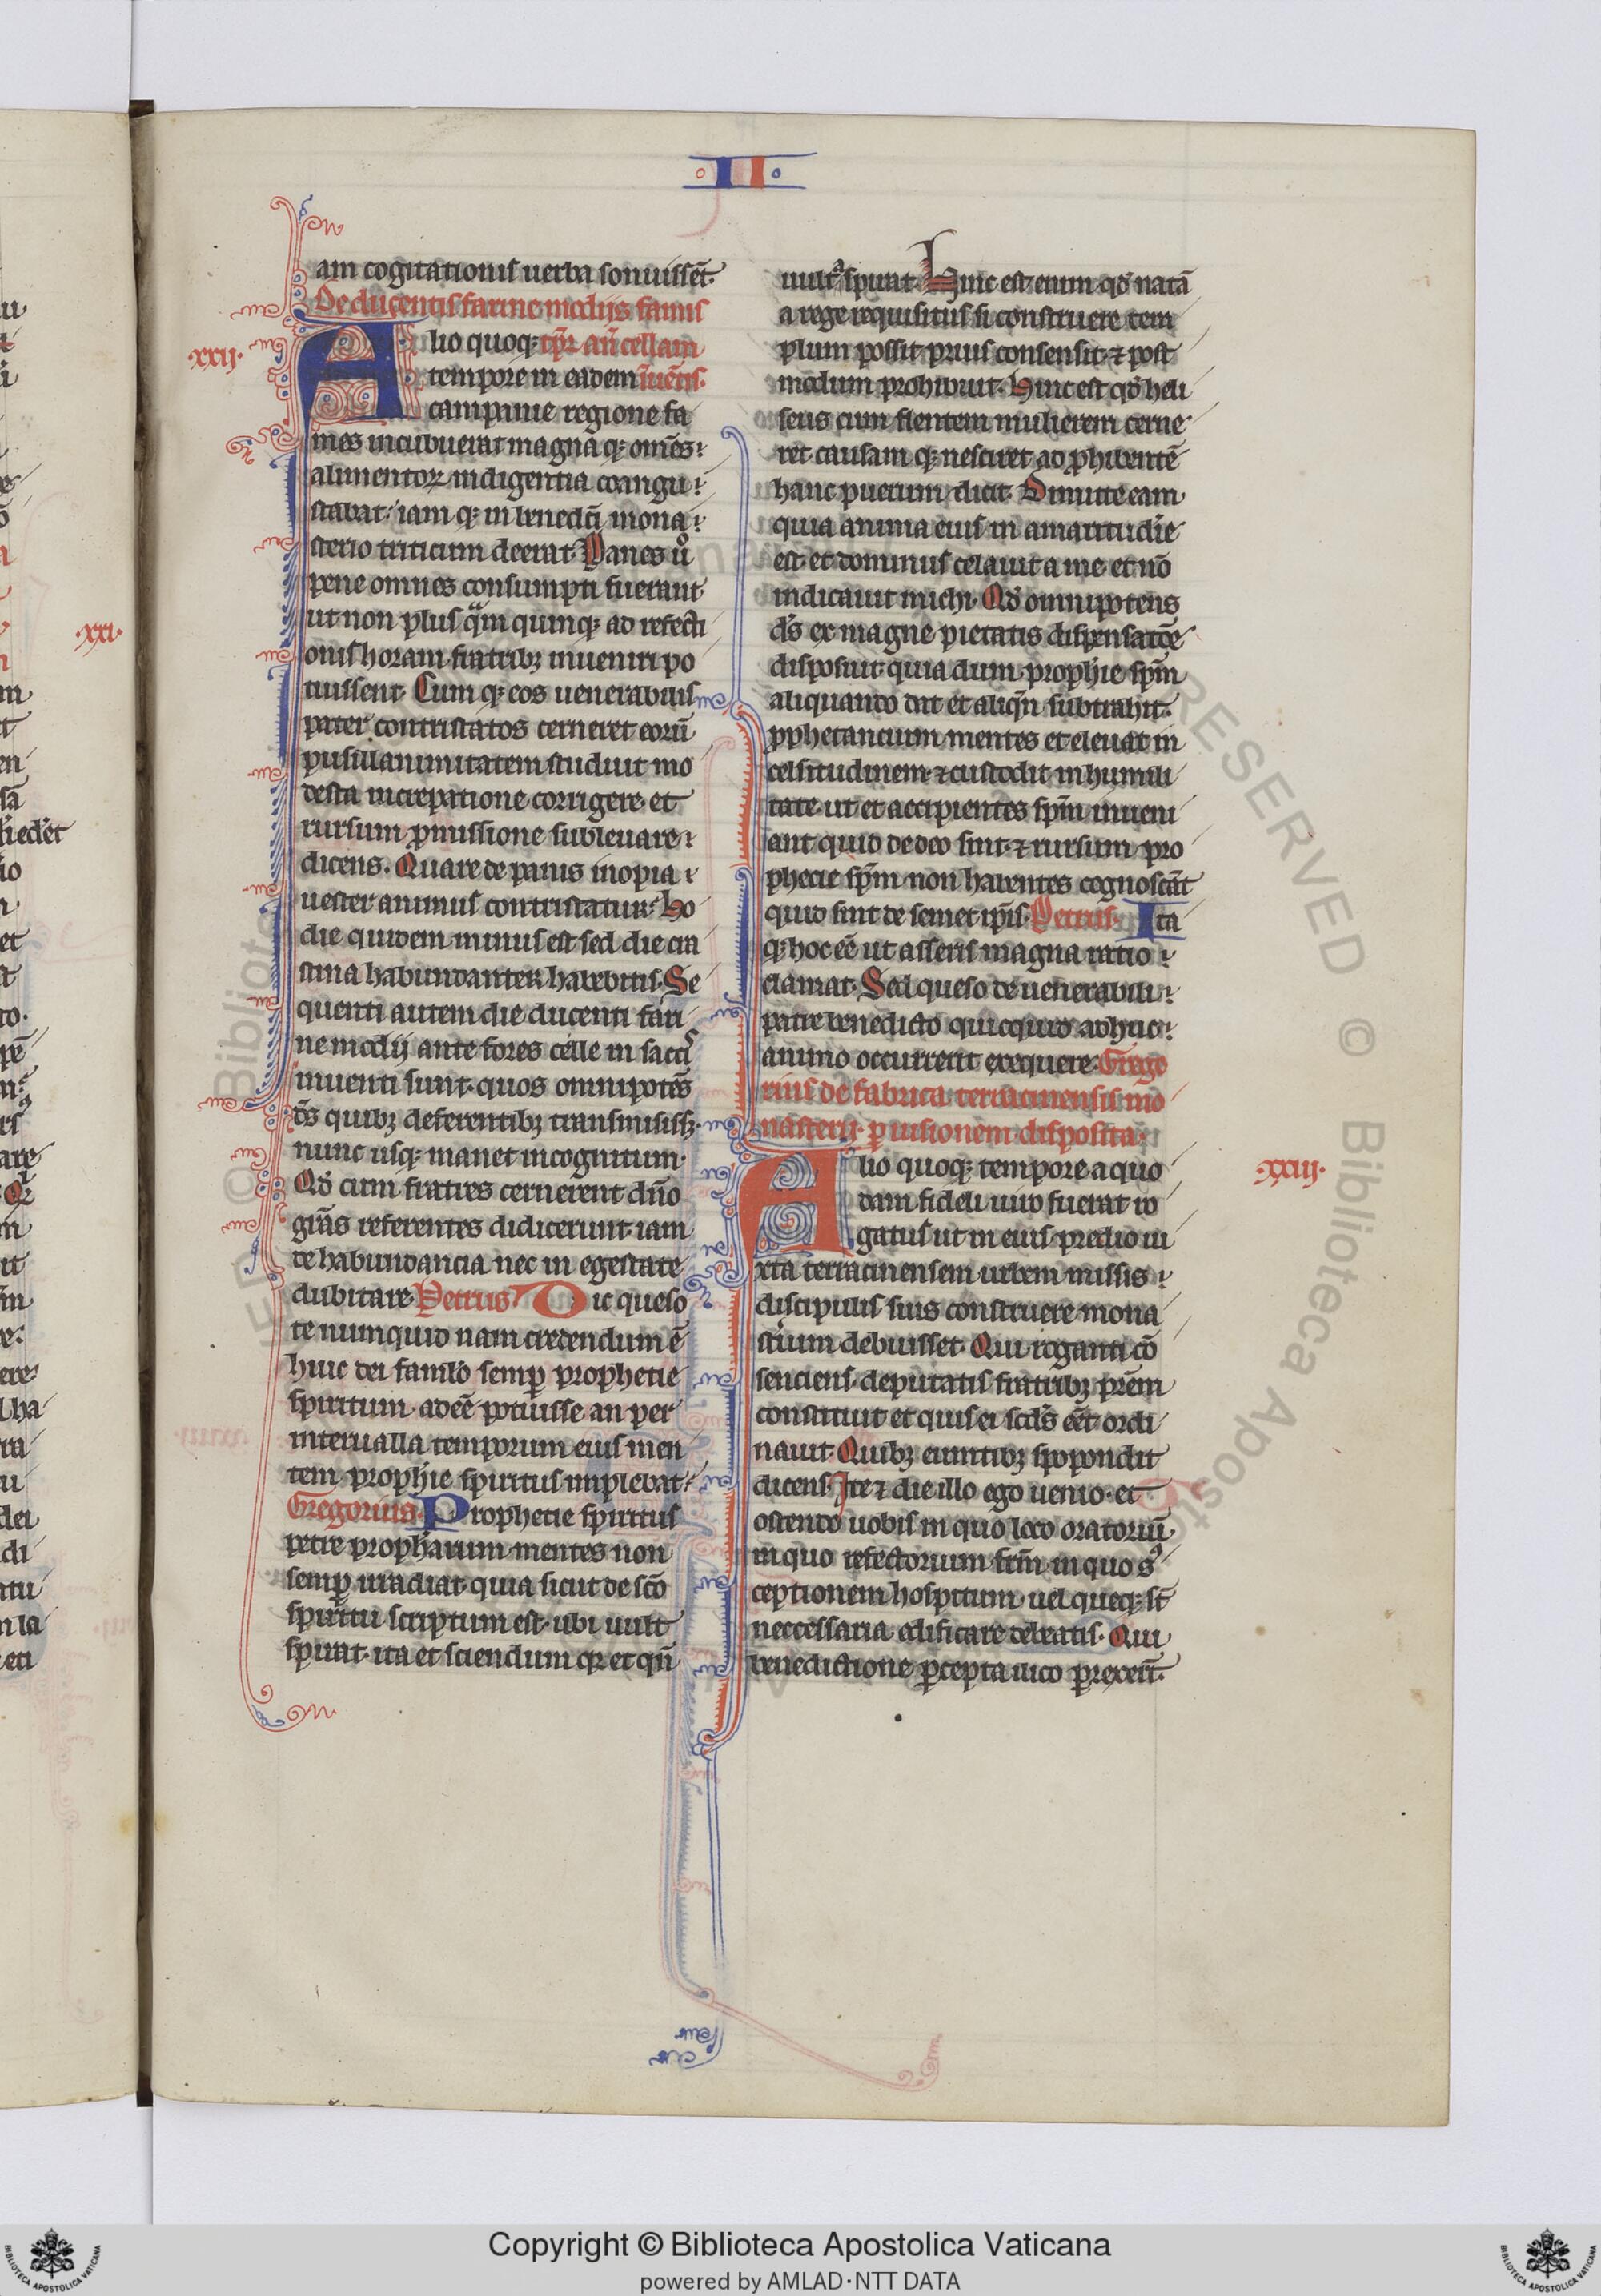 · II ·
am cogitationis uerba sonuissẽt.
De ducentis farine modijs famis
.xxij.
Alio quoq; tp̃r añ cellam
tempore in eadem inuẽtis.
campanie regione fa
mes incubuerat magna q; omẽs
alimentoꝝ indigentia coangu
stabat. iam q; in benedcĩ mona
sterio triticum deerat. Panes uͦ
pene omnes consumpti fuerant
ut non plus q̃m quinq; ad refecti
onis horam fratribꝫ inueniri po
tuissent. Cum q; eos uenerabilis
pater contristatos cerneret eorũ
pusillanimitatem studuit mo
desta increpatione corrigere. et
rursum ꝓmissione subleuare
dicens. Quare de panis inopia
uester animus contristatur. Ho
die quidem minus est sed die cra
stina habundanter habebitis. Se
quenti autem die ducenti fari
ne modij ante fores celle in sacc̾
inuenti sunt. quos omnipotẽs
d̃s quibꝫ deferentibꝫ transmisissꝫ.
nunc usq; manet incognitum.
Qd̾ cum fratres cernerent dño
grãs referentes didicerunt iam
de habundancia nec in egestate
dubitare. Petrus Dic queso
te numquid nam credendum ẽ
huic dei famlo semꝑ prophetie
spiritum adeẽ potuisse an per
interualla temporum eius men
tem prophie spiritus implebat.
Gregorius. Prophetie spiritus
petre propharum mentes non
semꝑ irradiat. quia sicut de scõ
spiritu scriptum est. ubi uult
spirat. ita et sciendum qꝛ et qñ
uult spirat. Hinc est enim qd̾ natã
a rege requisitus si construere tem
plum possit. prius consensit. ⁊ post
modum prohibuit. Hinc est qd̾ heli
seus cum flentem mulierem cerne
ret causam q; nesciret ad ꝓhibentẽ
hanc puerum dicit. Dimitte eam
quia anima eius in amaritudĩe
est. et dominus celauit a me et nõ
indicauit michi. Qd̾ omnipotens
d̃s ex magne pietatis dispensatõe
disposuit. quia dum prophie spm̃
aliquando dat et aliqñ subtrahit.
ꝓphetancium mentes et eleuat in
celsitudinem. ⁊ custodit in humili
tate. ut et accipientes spm̃ inueni
ant quid de deo sint. ⁊ rursum pro
phecie spm̃ non habentes cognoscãt
quid sint de semet ip̃is. Petrus. Ita
q; hoc eẽ ut asseris magna ratio
clamat. Sed queso de uenerabili
patre benedicto quicquid adhuc
animo occurrerit exequere. Grego
rius de fabrica terracinensis mo
nasterij. ꝑ uisionem disposita.
.xxiij.
Alio quoq; tempore a quo
dam fideli uiro fuerat ro
gatus ut in eius predio iu
xta terracinensem urbem missis
discipulis suis construere mona
steriũm debuisset. Qui roganti cõ
senciens. deputatis fratribꝫ prẽm
constituit et quis ei scd̃s eẽt ordi
nauit. Quibꝫ euntibꝫ spopondit
dicens. Ite ⁊ die illo ego uenio. et
ostendo uobis in quo loco oratoriũ
in quo refectorium frm̃. in quo sꝰ
ceptionem hospitum. uel queq; st̃
neccessaria edificare debeatis. Qui
benedictione ꝑcepta ilico ꝑrexerũt.
.xxi.
Copyright © Biblioteca Apostolica Vaticana
powered by AMLAD·NTT DATA